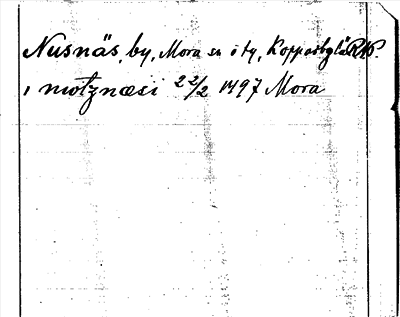 Nusnäs, by, Mora sn o ty, Kopparbg lä RAP.
i notznæsi 22/2 1497 Mora